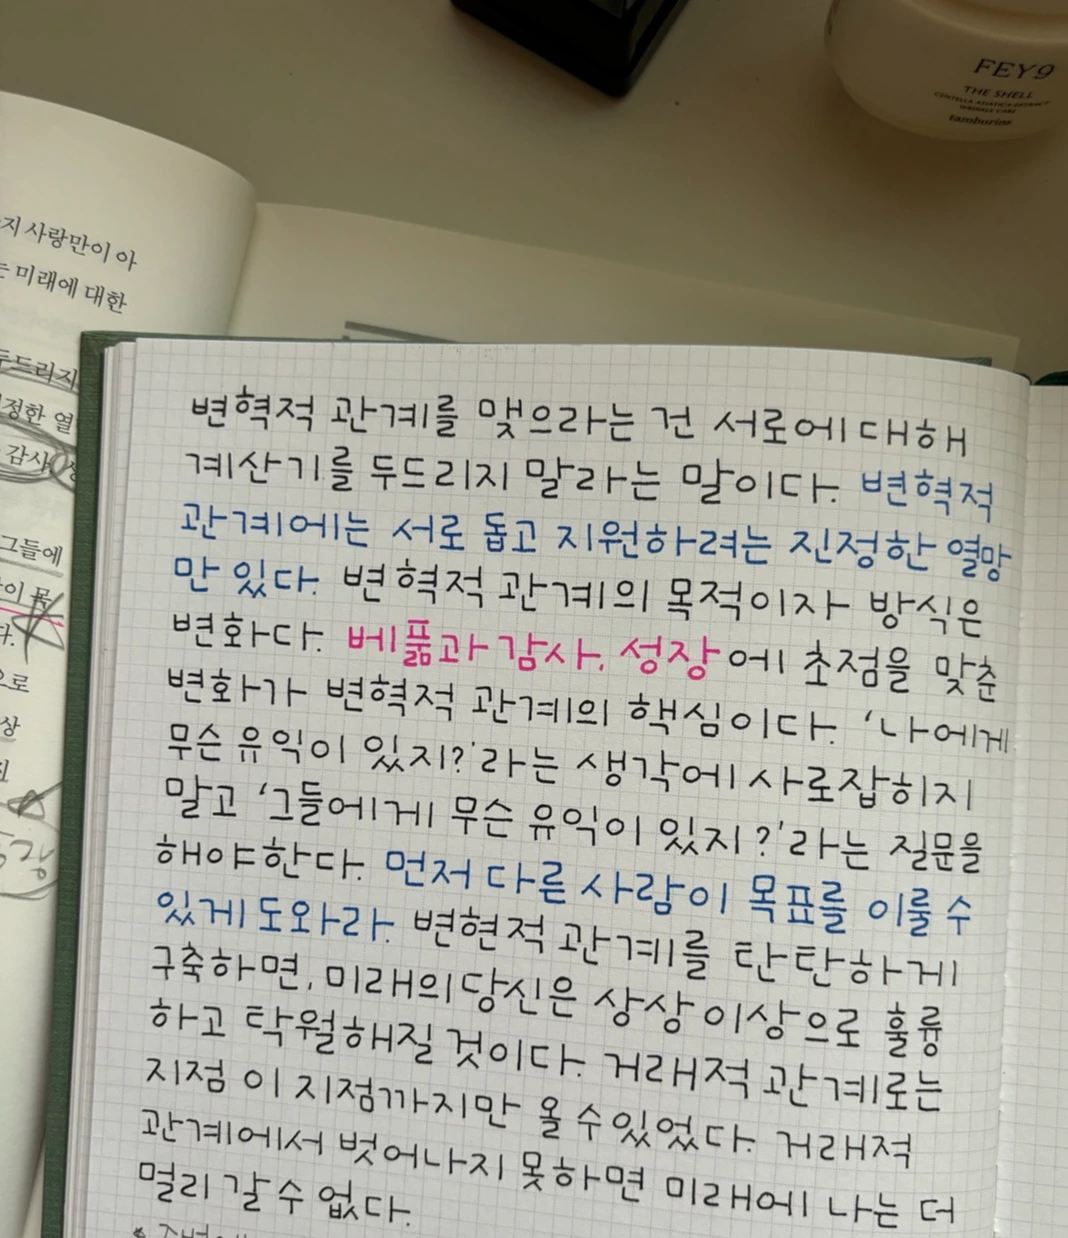 FEY9
THE SHELL
CENTELLA ASIATICA EXTRACT
WRINKLE CARE
tamburins
지 사랑만이 아
는 미래에 대한
두드리지
정한 열
감사
그들에
이 목
다.
으로
상
변혁적 관계를 맺으라는 건 서로에 대해
계산기를 두드리지 말라는 말이다. 변혁적
관계에는 서로 돕고 지원하려는 진정한 열망
만 있다. 변혁적 관계의 목적이자 방식은
변화다. 베풂과 감사, 성장에 초점을 맞춘
변화가 변혁적 관계의 핵심이다. ‘나에게
무슨 유익이 있지?’라는 생각에 사로잡히지
말고 ‘그들에게 무슨 유익이 있지?’라는 질문을
해야한다. 먼저 다른 사람이 목표를 이룰 수
있게 도와라. 변현적 관계를 탄탄하게
구축하면, 미래의 당신은 상상 이상으로 훌륭
하고 탁월해질 것이다. 거래적 관계로는
지점 이 지점까지만 올 수 있었다. 거래적
관계에서 벗어나지 못하면 미래에 나는 더
멀리 갈 수 없다.